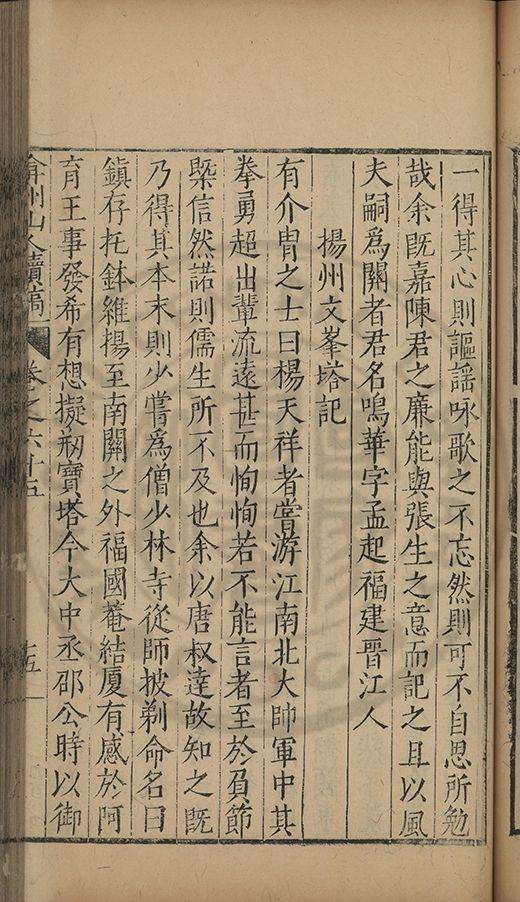 一得其心則謳謡咏歌之不忘然則可不自思所勉
哉余既嘉陳君之廉能與張生之意而記之且以風
夫嗣爲關者君名鳴華字孟起福建晉江人
揚州文峯塔記
有介胄之士曰楊天祥者嘗游江南北大帥軍中其
拳勇超出輩流遠甚而恂恂若不能言者至於負節
槩信然諾則儒生所不及也余以唐叔達故知之既
乃得其本末則少嘗爲僧少林寺從師披剃命名曰
鎮存托鉢維揚至南關之外福國菴結厦有感於阿
育王事發希有想擬刱寶塔今大中丞邵公時以御
弇州山人續稿 卷之六十五 十五